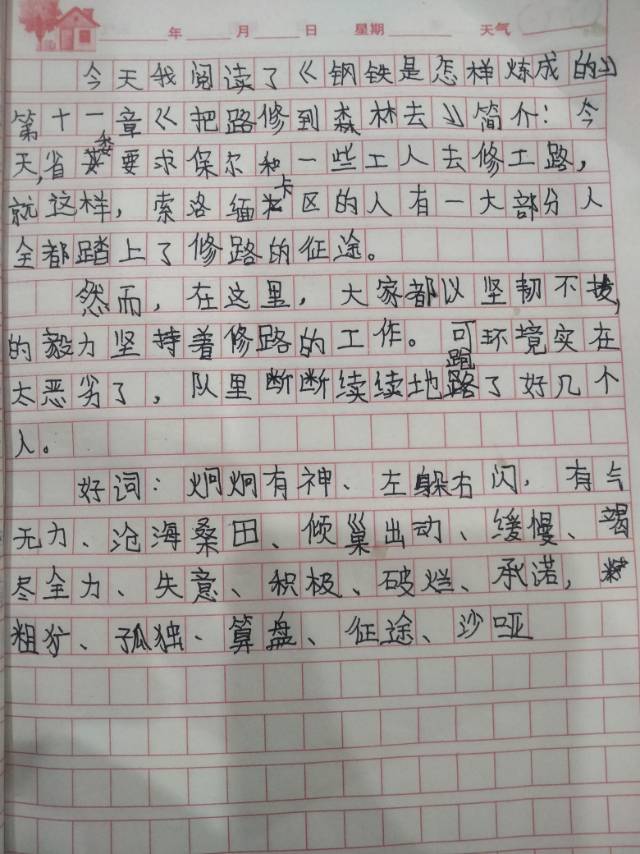 年 月 日 星期 天气
今天我阅读了《钢铁是怎样炼成的》
第十一章《把路修到森林去》简介：今
天，省委要求保尔和一些工人去修工路，
就这样，索洛缅卡区的人有一大部分人
全都踏上了修路的征途。
然而，在这里，大家都以坚韧不拔，
的毅力坚持着修路的工作。可环境实在
太恶劣了，队里断断续续地跑了好几个
人。
好词：炯炯有神、左躲右闪，有气
无力、沧海桑田、倾巢出动、缓慢、竭
尽全力、失意、积极、破烂、承诺，
粗犷、孤独、算盘、征途、沙哑